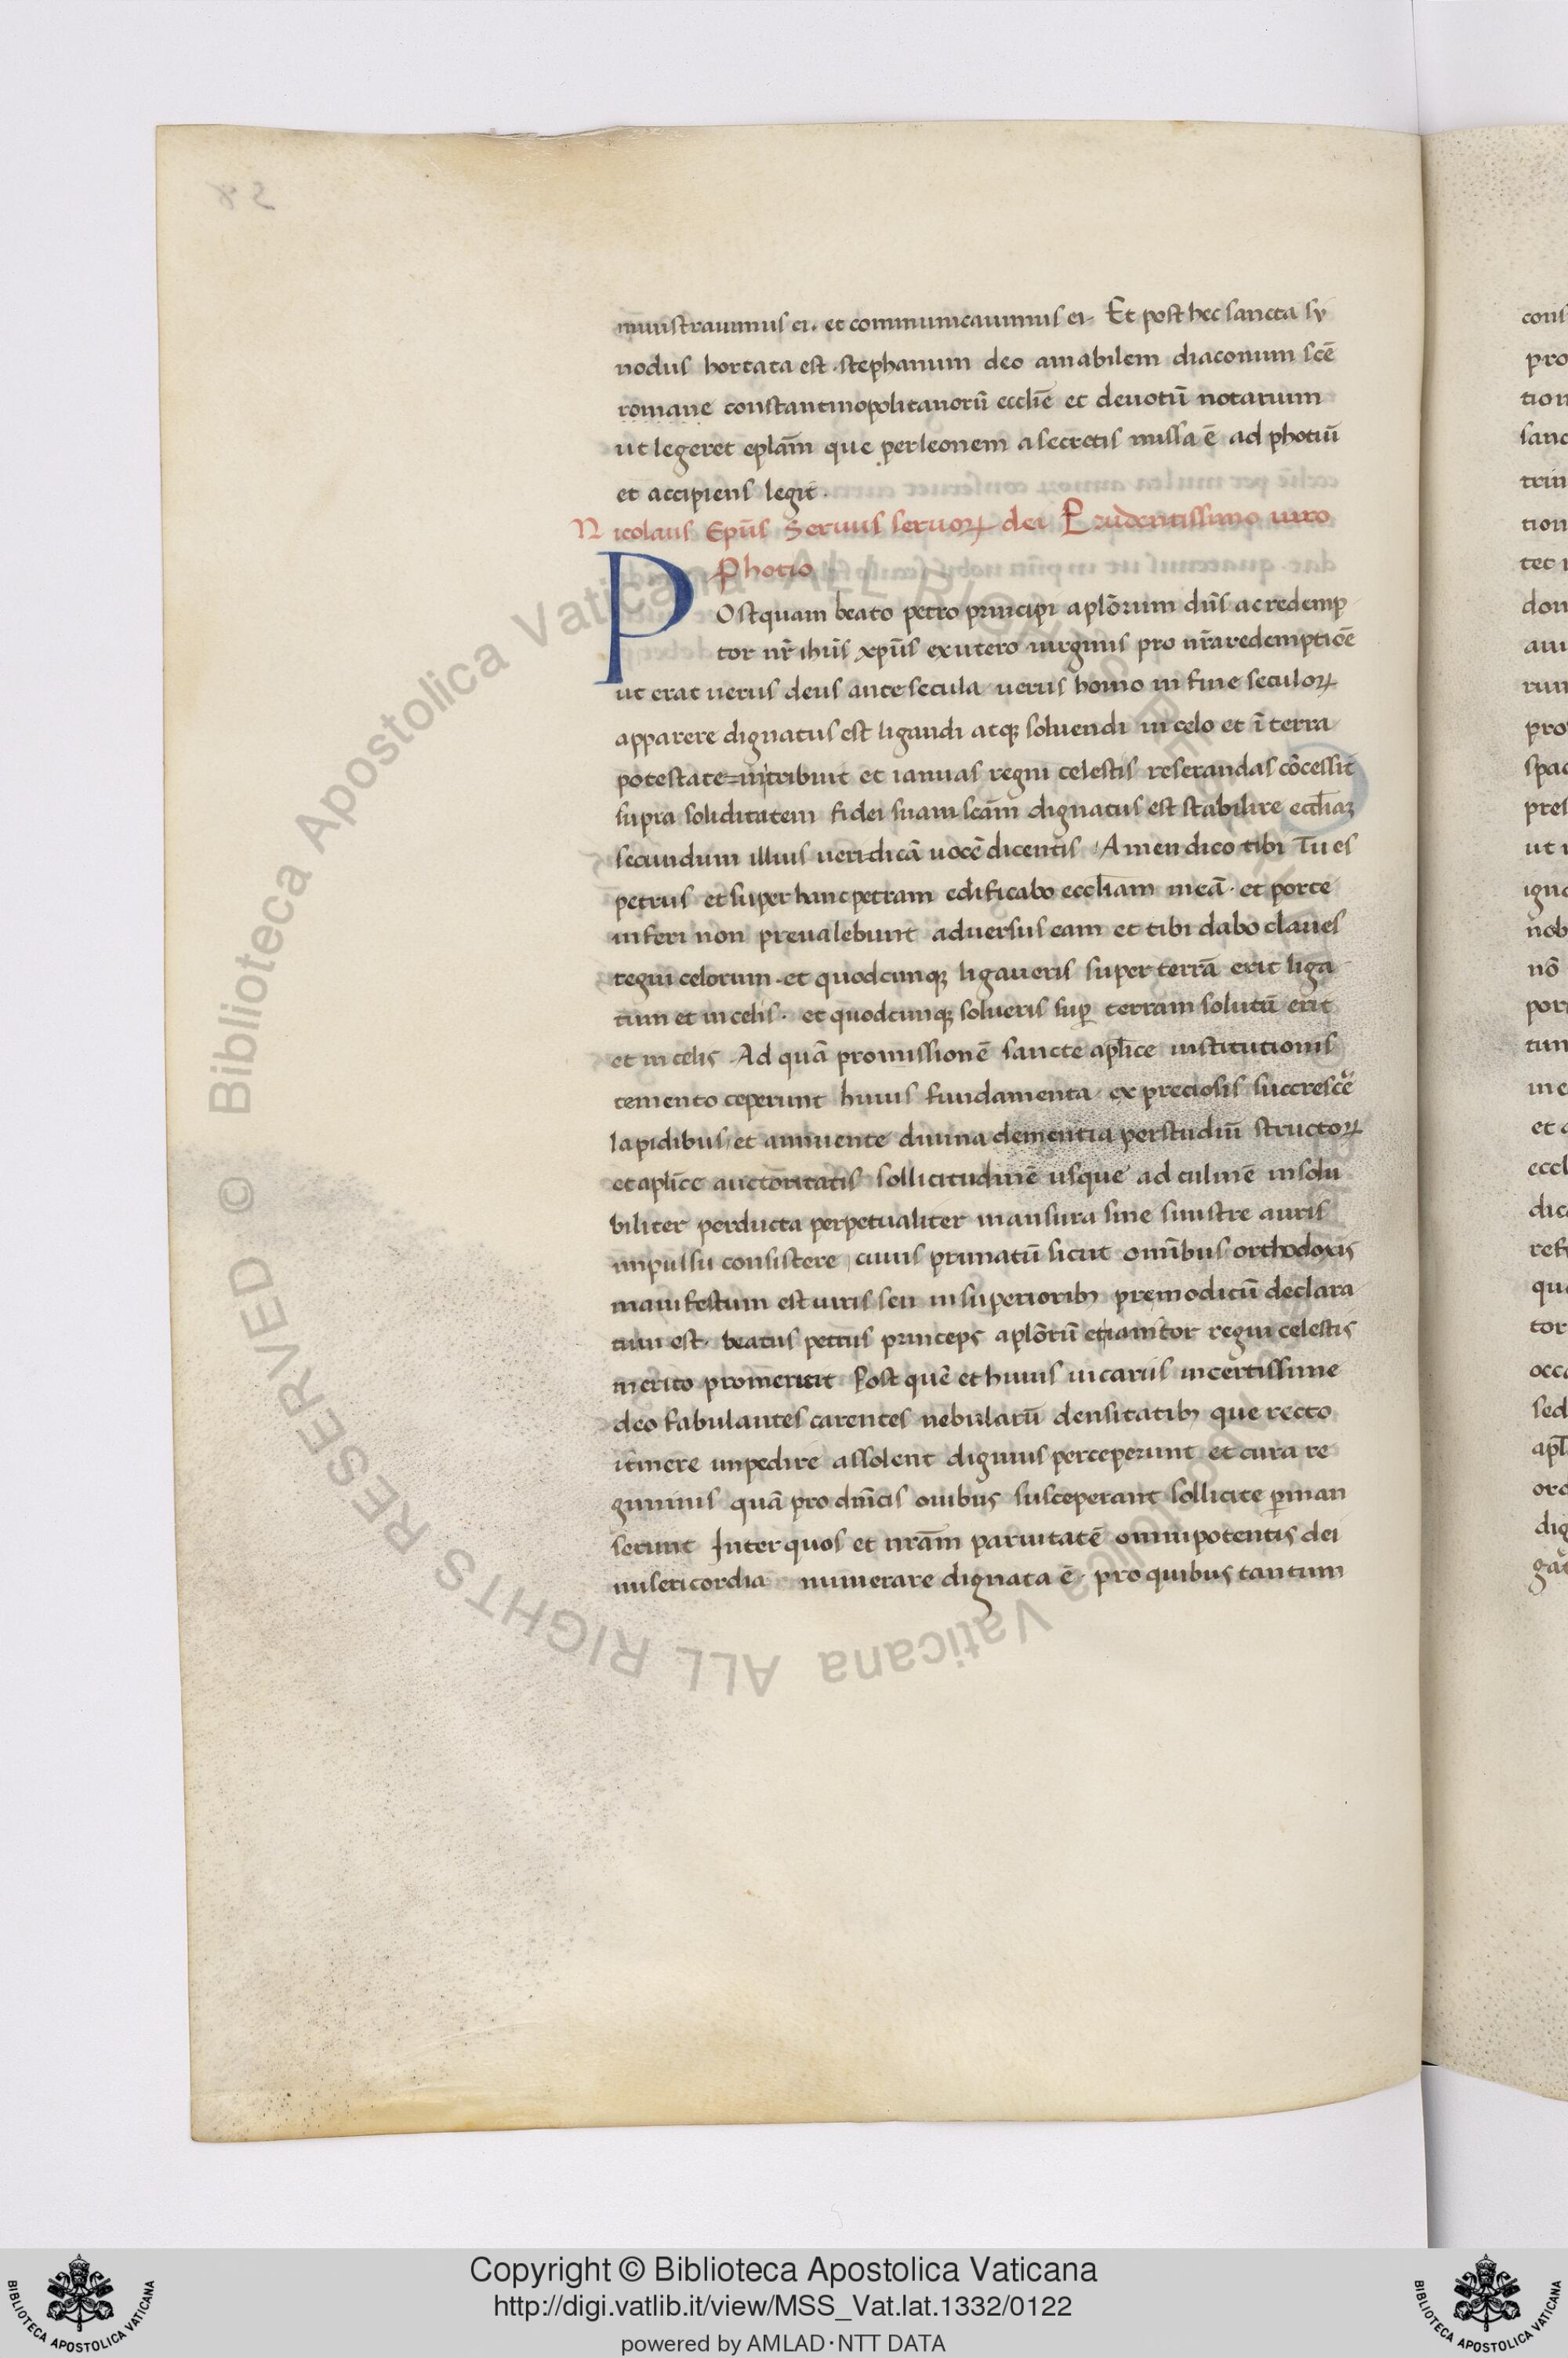 ministrauimus ei. et communicauimus ei. Et post hec sancta sy
nodus hortata est stephanum deo amabilem diaconum scē
romane constantinopolitanorū ecclīe et deuotū notarium
ut legeret eplām que per leonem a secretis missa ē ad photiū
et accipiens legit.
Nicolaus Epūs Seruus seruoꝝ dei Prudentissimo uiro
Photio
Postquam beato petro principi aplōrum dn̄s ac redemp
tor nr̄ ihūs xpūs ex utero uirginis pro nr̄a redemptiōe
ut erat uerus deus ante secula uerus homo in fine seculoꝝ
apparere dignatus est ligandi atqꝫ soluendi in celo et ī terra
potestate intribuit et ianuas regni celestis reserandas cōcessit
supra soliditatem fidei suam scām dignatus est stabilire eccliaꝫ
secundum illius ueridicā uocē dicentis. Amen dico tibi Tu es
petrus et super hanc petram edificabo eccliam meā. et porte
inferi non preualebunt aduersus eam et tibi dabo claues
regni celorum. et quodcunqꝫ ligaueris super terrā erit liga
tum et in celis. et quodcunqꝫ solueris suꝑ terram solutū erit
et in celis Ad quā promissionē sancte aplīce institutionis
cemento ceperunt huius fundamenta ex preciosis succrescē
lapidibus et annuente diuina clementia per studiū structoꝝ
et aplīce auctoritatis sollicitudinē usque ad culmē insolu
biliter perducta perpetualiter mansura sine sinistre auris
impulsu consistere cuius primatū sicut omībus orthodoxis
manifestum est uiris seu in superioribꝫ premodicū declara
tum est. beatus petrus princeps aplōrū et ianitor regni celestis
merito promeruit Post quē et huius uicariis incertissime
deo fabulantes carentes nebularū densitatibꝫ que recto
itinere impedire assolent dignius perceperunt et cura re
giminis quā pro dn̄icis ouibus susceperant sollicite ꝑman
serunt Inter quos et nrām paruitatē omnipotentis dei
misericordia numerare dignata ē. pro quibus tantum
© Biblioteca Apostolica Vaticana ALL RIGHTS RESERVED
Copyright © Biblioteca Apostolica Vaticana
http://digi.vatlib.it/view/MSS_Vat.lat.1332/0122
powered by AMLAD·NTT DATA
BIBLIOTECA APOSTOLICA VATICANA
BIBLIOTECA APOSTOLICA VATICANA